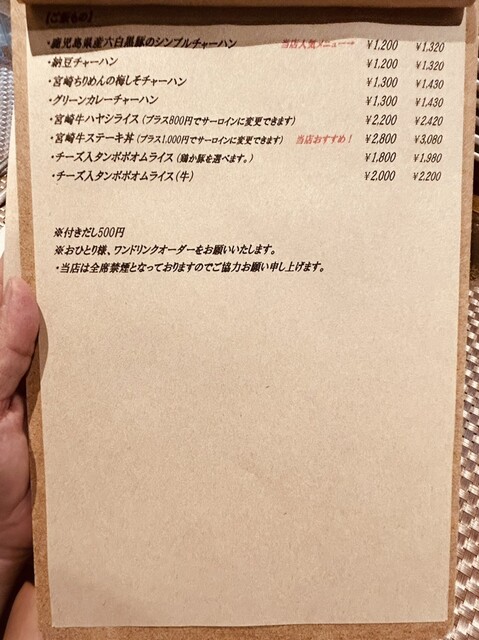 【ご飯もの】
・鹿児島県産六白黒豚のシンプルチャーハン 当店人気メニュー→ ¥1,200 ¥1,320
・納豆チャーハン ¥1,200 ¥1,320
・宮崎ちりめんの梅しそチャーハン ¥1,300 ¥1,430
・グリーンカレーチャーハン ¥1,300 ¥1,430
・宮崎牛ハヤシライス(プラス800円でサーロインに変更できます) ¥2,200 ¥2,420
・宮崎牛ステーキ丼(プラス1,000円でサーロインに変更できます) 当店おすすめ! ¥2,800 ¥3,080
・チーズ入タンポポオムライス(鶏か豚を選べます。) ¥1,800 ¥1,980
・チーズ入タンポポオムライス(牛) ¥2,000 ¥2,200
※付きだし500円
※おひとり様、ワンドリンクオーダーをお願いいたします。
・当店は全席禁煙となっておりますのでご協力お願い申し上げます。